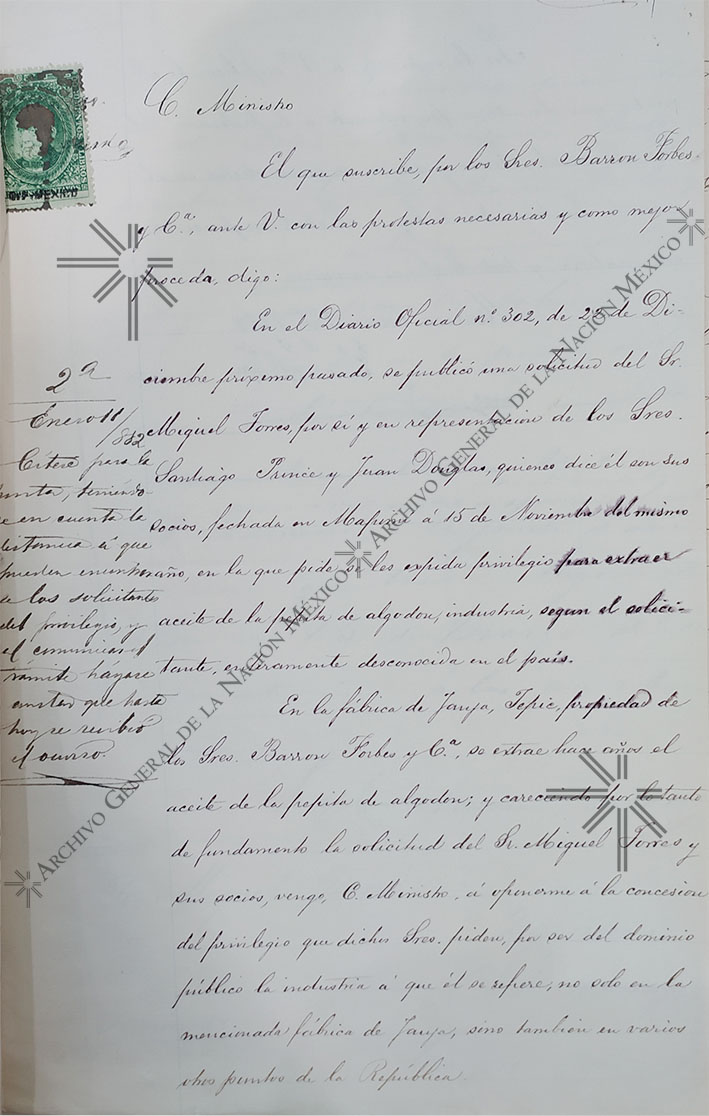 C. Ministro
El que suscribe, por los Sres. Barron Forbes
y Cª, ante V. con las protestas necesarias y como mejor
proceda, digo:
En el Diario Oficial nº 302, de de Di-
ciembre próximo pasado, se publicó una solicitud del Sr.
Miguel Torres, por sí y en representacion de los Sres.
Santiago Prince y Juan Douglas, quienes dice él son sus
socios, fechada en Mapimí á 15 de Noviembre del mismo
año, en la que pide se les expida privilegio para extraer
aceite de la pepita de algodon, industria, segun el solici-
tante, enteramente desconocida en el país.
En la fábrica de Jauja, Tepic, propiedad de
los Sres. Barron Forbes y Cª, se extrae hace años el
aceite de la pepita de algodon; y careciendo por lo tanto
de fundamento la solicitud del Sr. Miguel Torres y
sus socios, vengo, C. Ministro, á oponerme á la concesion
del privilegio que dichos Sres. piden, por ser del dominio
público la industria á que él se refiere, no solo en la
mencionada fábrica de Jauja, sino tambien en varios
otros puntos de la República.
2ª
Enero 11/882
Cítese para la
junta, teniendo
se en cuenta la
distancia á que
pueden encontrar
se los solicitantes
del privilegio, y
al comunicar el
trámite hágase
constar que hasta
hoy se recibió
el ocurso.
MEXICO
Archivo General de la Nación México
Archivo General de la Nación México